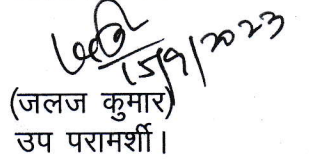 15/9/2023
(जलज कुमार)
उप परामर्शी।